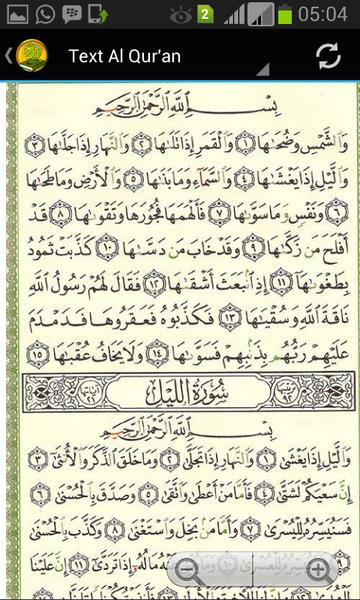 2
05:04
Text Al Qur'an
بِسْمِ ٱللَّهِ ٱلرَّحْمَٰنِ ٱلرَّحِيمِ
وَٱلشَّمْسِ وَضُحَىٰهَا ١ وَٱلْقَمَرِ إِذَا تَلَىٰهَا ٢ وَٱلنَّهَارِ إِذَا جَلَّىٰهَا ٣
وَٱلَّيْلِ إِذَا يَغْشَىٰهَا ٤ وَٱلسَّمَآءِ وَمَا بَنَىٰهَا ٥ وَٱلْأَرْضِ وَمَا طَحَىٰهَا
٦ وَنَفْسٍ وَمَا سَوَّىٰهَا ٧ فَأَلْهَمَهَا فُجُورَهَا وَتَقْوَىٰهَا ٨ قَدْ
أَفْلَحَ مَن زَكَّىٰهَا ٩ وَقَدْ خَابَ مَن دَسَّىٰهَا ١٠ كَذَّبَتْ ثَمُودُ
بِطَغْوَىٰهَآ ١١ إِذِ ٱنۢبَعَثَ أَشْقَىٰهَا ١٢ فَقَالَ لَهُمْ رَسُولُ ٱللَّهِ
نَاقَةَ ٱللَّهِ وَسُقْيَٰهَا ١٣ فَكَذَّبُوهُ فَعَقَرُوهَا فَدَمْدَمَ
عَلَيْهِمْ رَبُّهُم بِذَنۢبِهِمْ فَسَوَّىٰهَا ١٤ وَلَا يَخَافُ عُقْبَٰهَا ١٥
سُورَةُ ٱلَّيْلِ
بِسْمِ ٱللَّهِ ٱلرَّحْمَٰنِ ٱلرَّحِيمِ
وَٱلَّيْلِ إِذَا يَغْشَىٰ ١ وَٱلنَّهَارِ إِذَا تَجَلَّىٰ ٢ وَمَا خَلَقَ ٱلذَّكَرَ وَٱلْأُنثَىٰٓ ٣
إِنَّ سَعْيَكُمْ لَشَتَّىٰ ٤ فَأَمَّا مَنْ أَعْطَىٰ وَٱتَّقَىٰ ٥ وَصَدَّقَ بِٱلْحُسْنَىٰ ٦
فَسَنُيَسِّرُهُۥ لِلْيُسْرَىٰ ٧ وَأَمَّا مَنۢ بَخِلَ وَٱسْتَغْنَىٰ ٨ وَكَذَّبَ بِٱلْحُسْنَىٰ
٩ فَسَنُيَسِّرُهُۥ لِلْعُسْرَىٰ ١٠ وَمَا يُغْنِى عَنْهُ مَالُهُۥٓ إِذَا تَرَدَّىٰٓ ١١ إِنَّ عَلَيْنَا